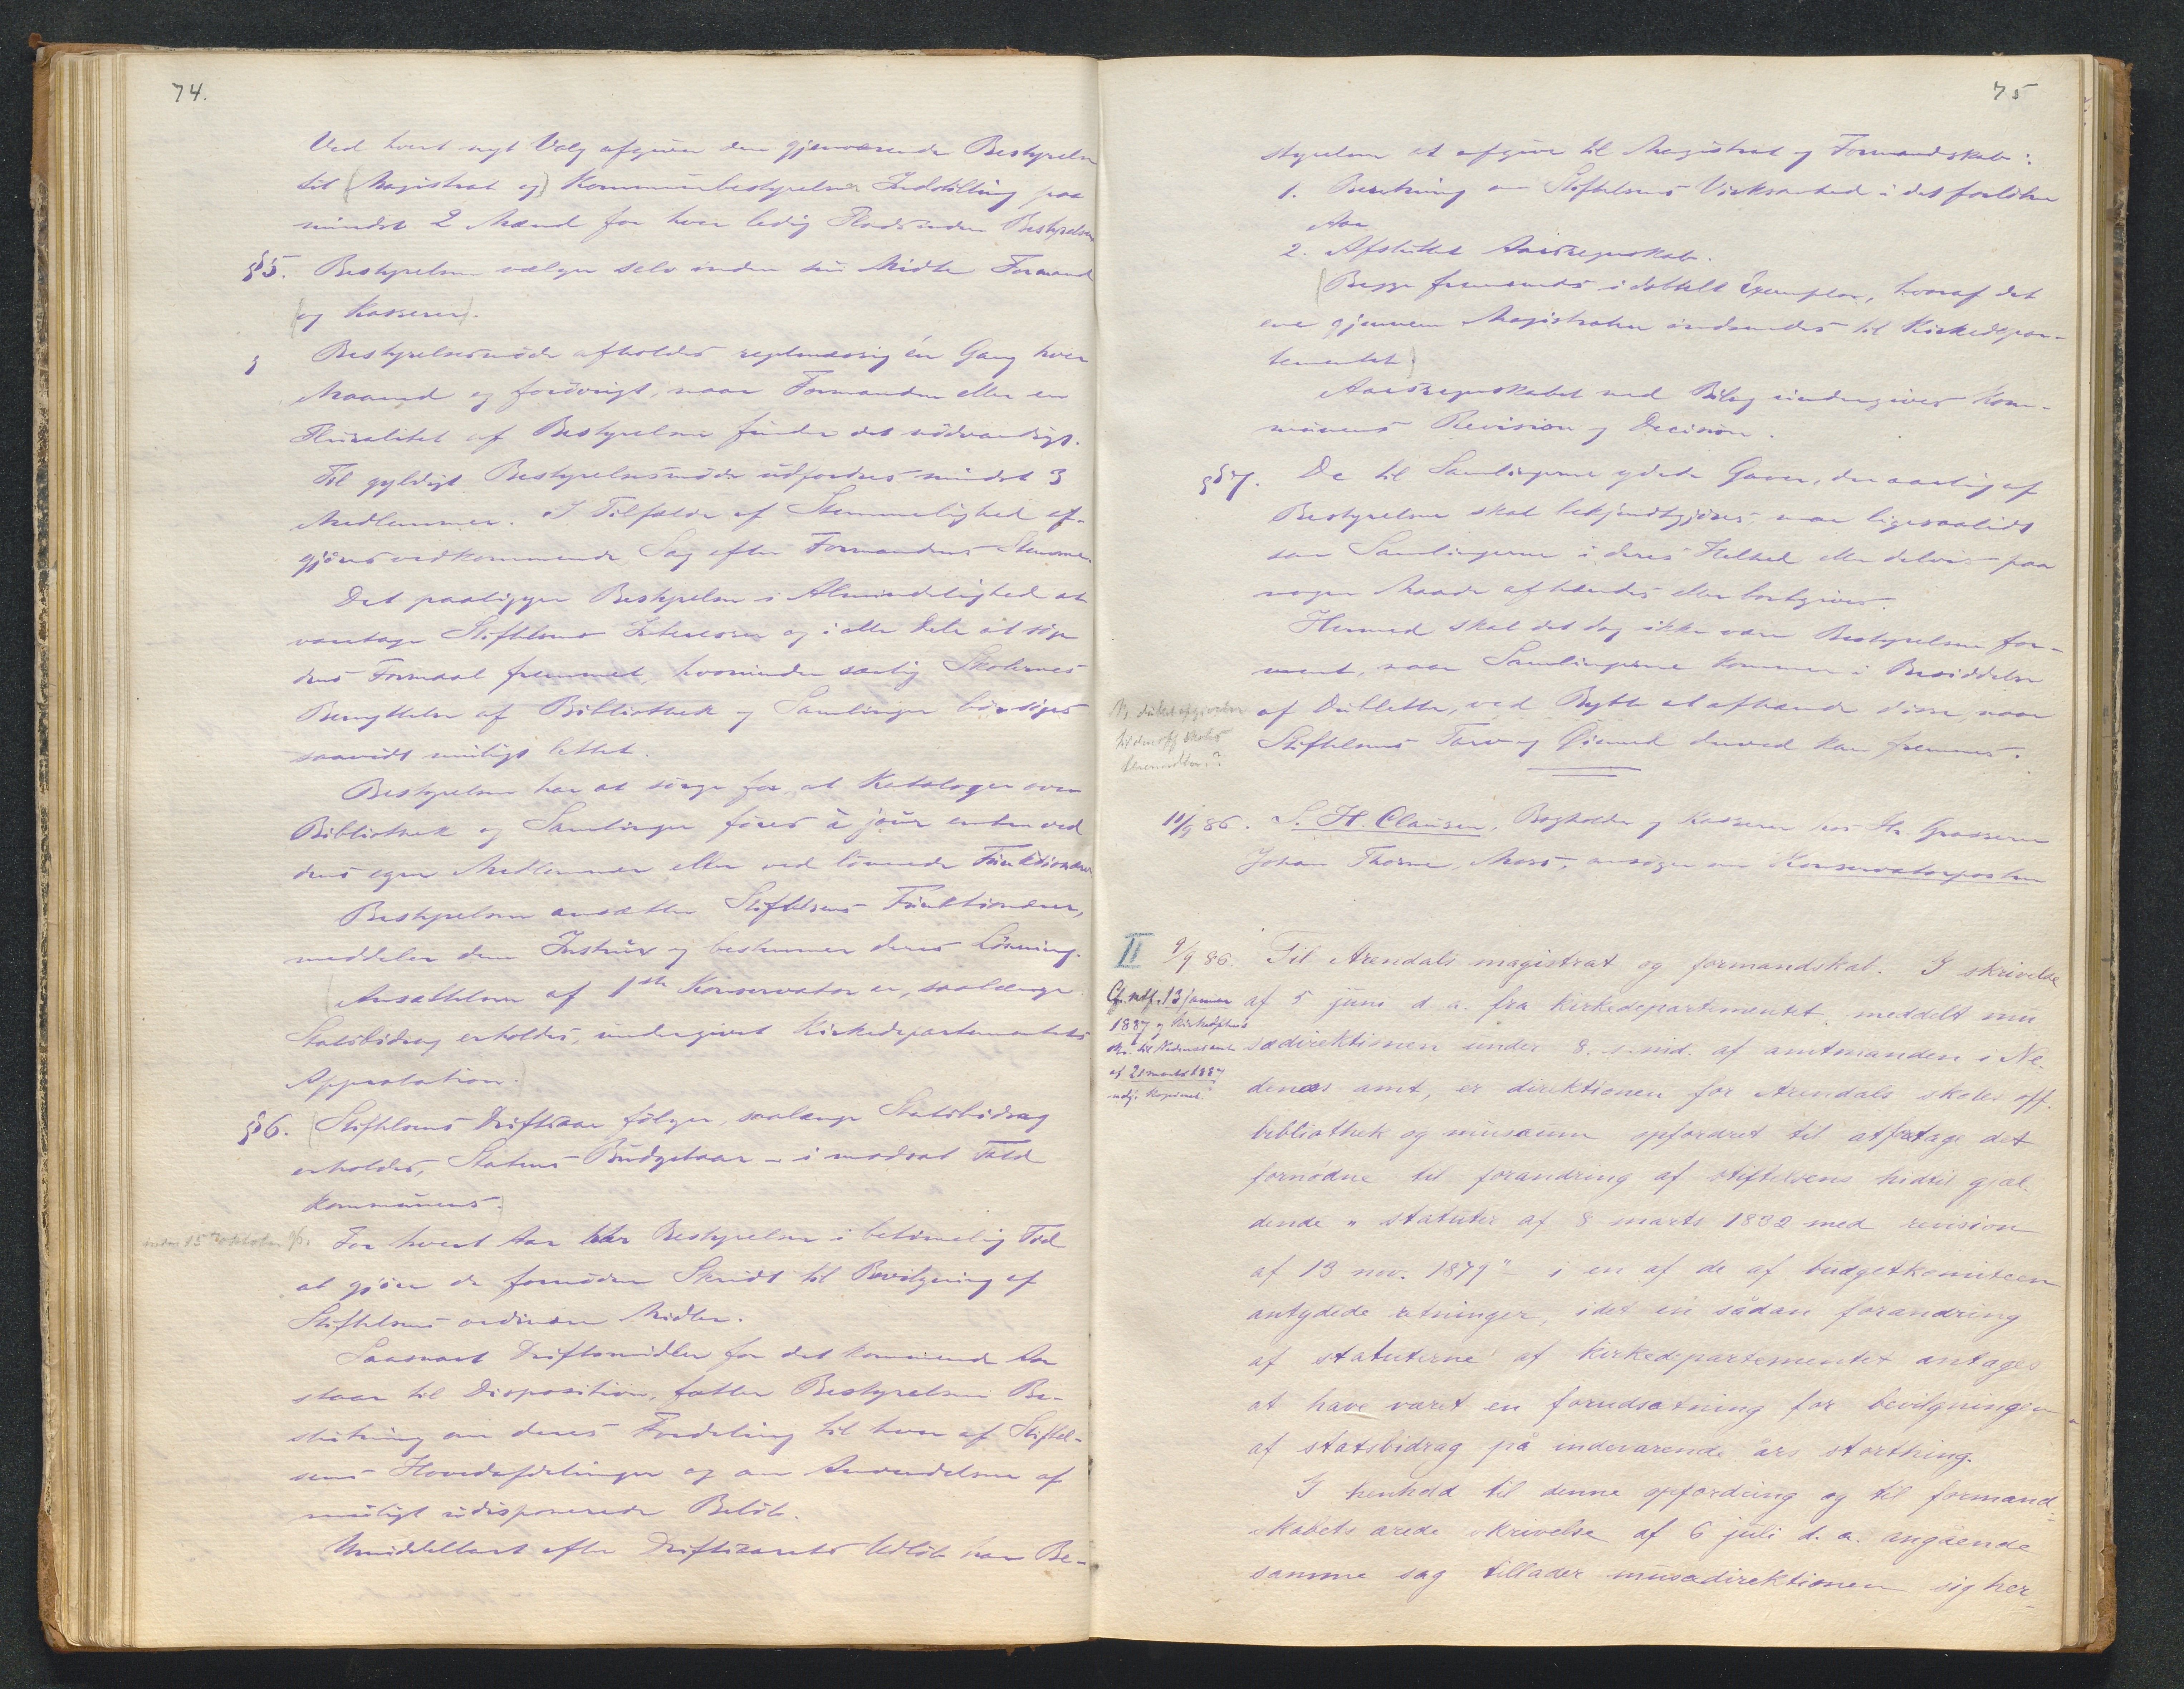 74.
Ved hvert nyt Valg afgiver den gjenværende Bestyrelse
til (Magistrat og) Kommunebestyrelsen Indstilling paa
mindst 2 Mænd for hver ledig Plads inden Bestyrelsen
§5. Bestyrelsen vælger selv inden sin Midte Formand
(og Kasserer).
Bestyrelsesmøde afholdes regelmæssig én Gang hver
Maaned og forøvrigt, naar Formanden eller en
Pluralitet af Bestyrelsen finder det nødvendigt.
Til gyldigt Bestyrelsesmøde udfordres mindst 3
Medlemmer. I Tilfælde af Stemmelighed af-
gjøres vedkommende Sag efter Formandens Stemme.
Det paaligger Bestyrelsen i Almindelighed at
varetage Stiftelsens Interesser og i alle Dele at søge
dens Formaal fremmet, hvorunder særlig Skolernes
Benyttelse af Bibliothek og Samlinger bør søges
saavidt muligt lettet.
Bestyrelsen har at sørge for, at Kataloger over
Bibliothek og Samlinger føres à jour enten ved
dens egne Medlemmer eller ved lønnede Funktionærer
Bestyrelsen ansætter Stiftelsens Funktionærer,
meddeler dem Instrux og bestemmer deres Lønning.
(Ansættelsen af 1ste Konservator er, saalænge
Statsbidrag erholdes, undergivet Kirkedepartementets
Approbation.)
§6. (Stiftelsens Driftsaar følger, saalænge Statsbidrag
erholdes, Statens Budgetaar – i modsat Fald
Kommunens.)
inden 15 oktober
For hvert Aar har Bestyrelsen i betimelig Tid
at gjøre de fornødne Skridt til Bevilgning af
Stiftelsens ordinære Midler.
Saasnart Driftsmidler for det kommende Aar
staar til Disposition, fatter Bestyrelsen Be-
slutning om deres Fordeling til hver af Stiftel-
sens Hovedafdelinger og om Anvendelsen af
muligt udisponerede Beløb.
Umiddelbart efter Driftsaarets Udløb har Be-
75
styrelsen at afgive til Magistrat og Formandskab:
1. Beretning om Stiftelsens Virksomhed i det forløbne
Aar
2. Afsluttet Aarsregnskab.
(Begge fremsendes i dobbelt Exemplar, hvoraf det
ene gjennem Magistraten indsendes til Kirkedepar-
tementet)
Aarsregnskabet med Bilag undergives Kom-
munens Revision og Decision.
§7. De til Samlingerne ydede Gaver, der aarlig af
Bestyrelsen skal bekjendtgjøres, maa ligesaalidt
som Samlingerne i deres Helhed eller delvis paa
nogen Maade afhændes eller bortgives.
Hermed skal det dog ikke være Bestyrelsen for-
ment, naar Samlingerne kommer i Besiddelse
af Dubletter, ved Bytte at afhænde disse, naar
Stiftelsens Tarv og Øiemed derved kan fremmes.
11/9 86. S. H. Clausen, Bogholder og Kasserer hos Hr. Grosserer
Johan Thorne, Moss, ansøger om Konservatorposten
II 9/9 86. Til Arendals magistrat og formandskab. I skrivelse
Cfr. ndf. 13 januar
1887 og Kirkedptets
skr. til Nedenes amt
af 21 marts 1887
af 5 juni d. a. fra Kirkedepartementet, meddelt mu
sædirektionen under 8. s. md. af amtmanden i Ne-
denæs amt, er direktionen for Arendals skoles off.
bibliothek og musæum opfordret til at foretage det
fornødne til forandring af stiftelsens hidtil gjæl-
dende "statuter af 8 marts 1832 med revision
af 13 nov. 1879" i en af de af budgetkomiteen
antydede retninger, idet en sådan forandring
af statuterne af Kirkedepartementet antages
at have været en forudsætning for bevilgningen
af statsbidrag på indeværende års storthing.
I henhold til denne opfordring og til formand-
skabets ærede skrivelse af 6 juli d. a. angående
samme sag tillader musædirektionen sig her-